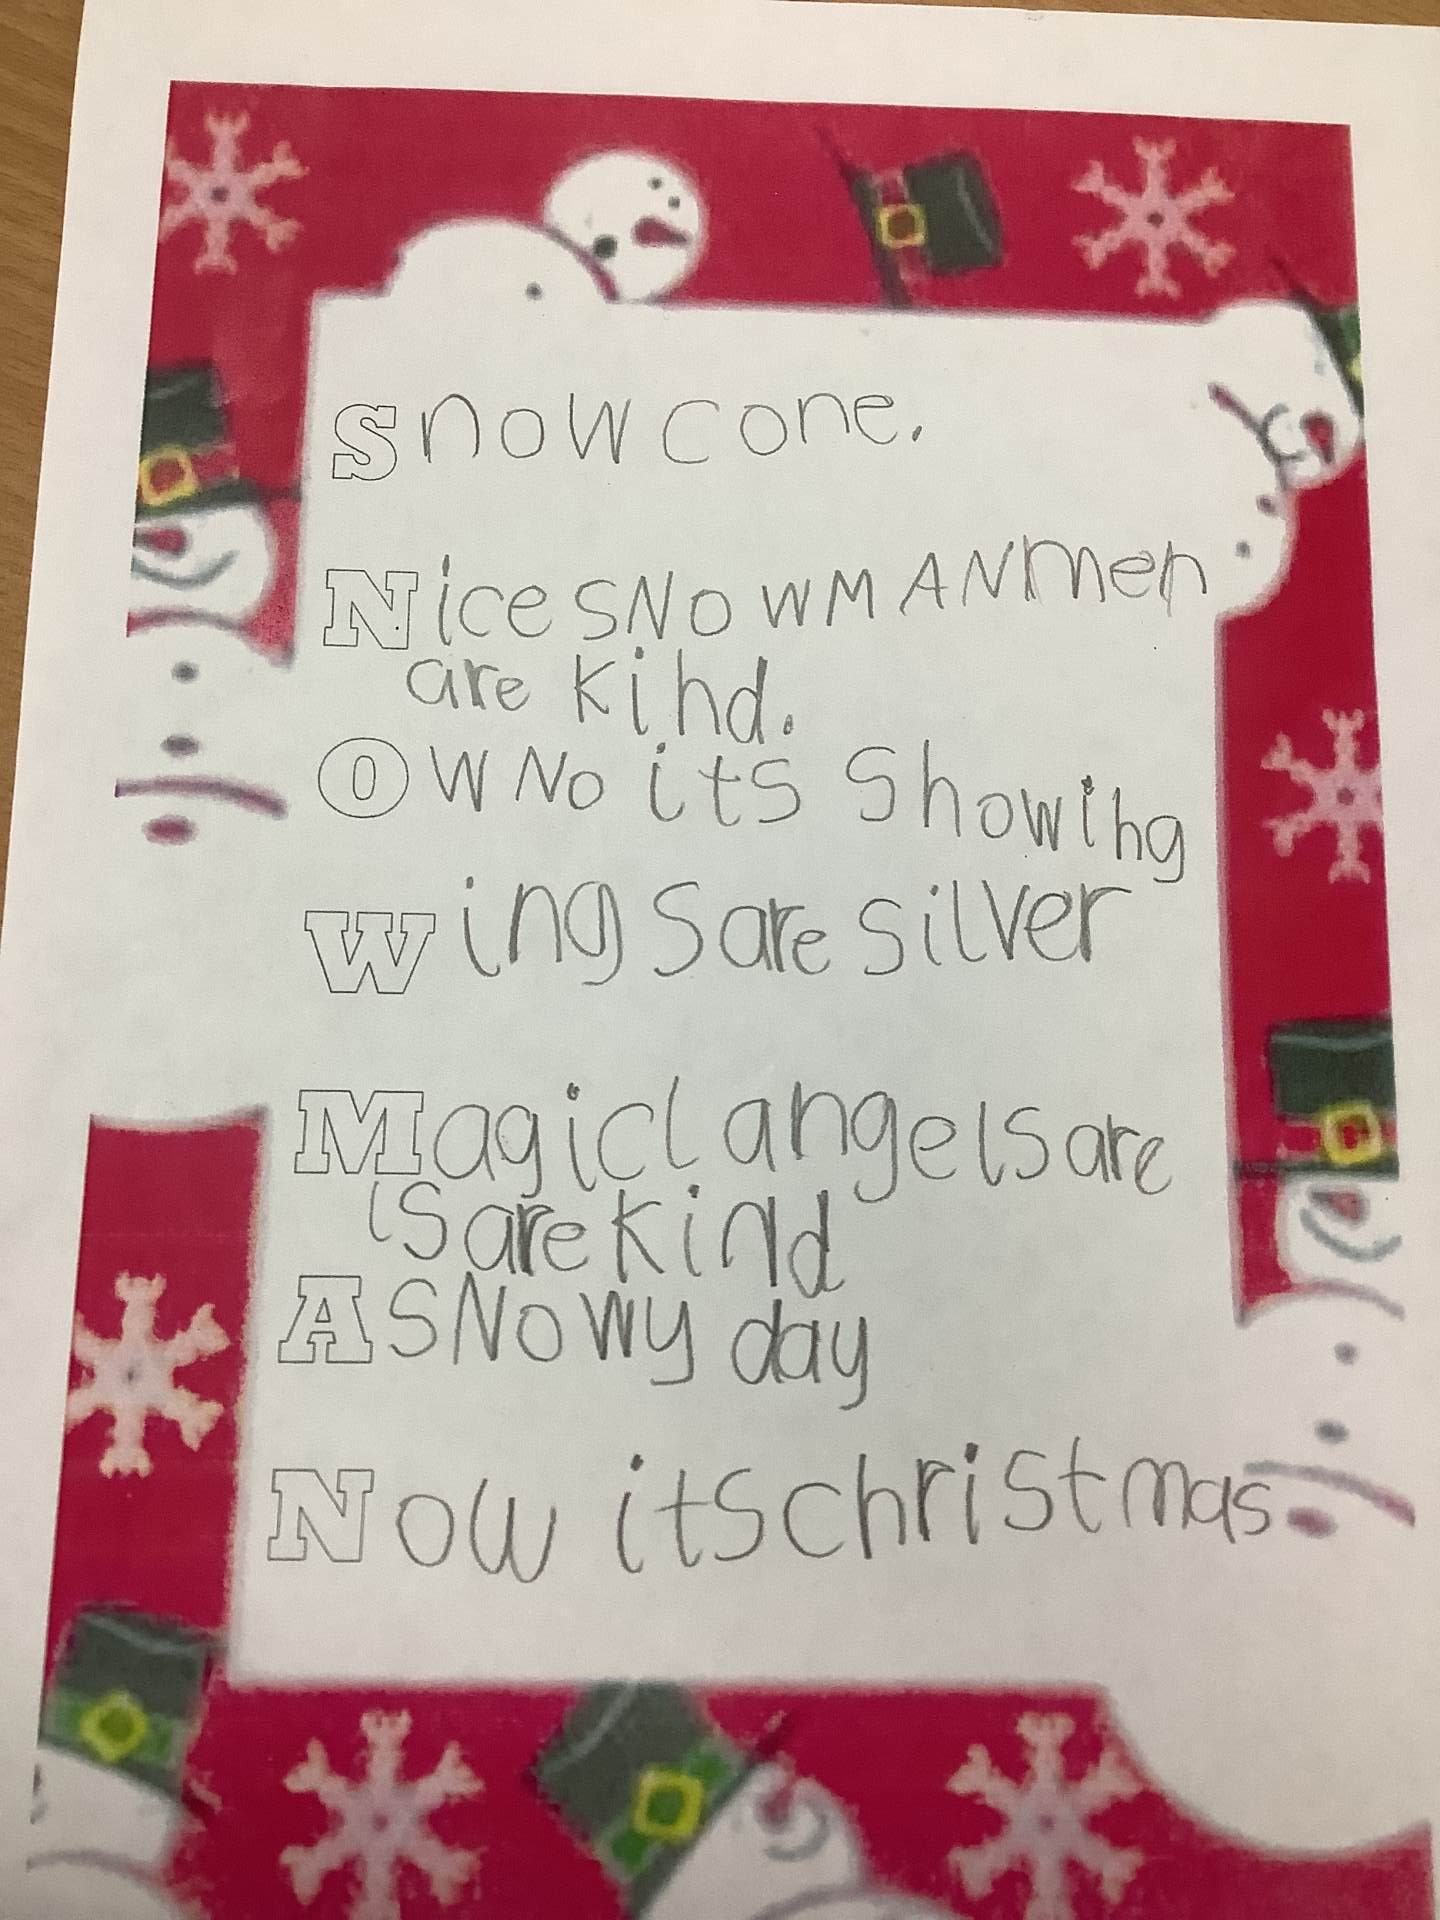 Snow cone.
Nice SNOWMANmen
are kind.
OW No its Showing
Wings are silver
Magicl angels are
is are kind
A SNowy day
Now its christmas